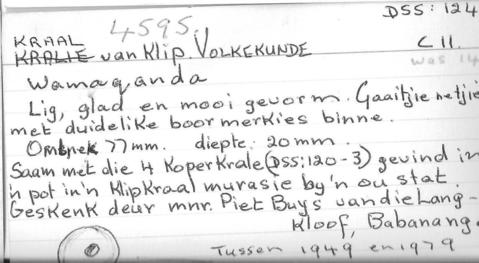 DSS: 124
4595
KRAAL
KRALIE van Klip. VOLKEKUNDE
C II.
was 14
Wamaqanda
Lig, glad en mooi gevorm. Gaaitjie netjie
met duidelike boormerkies binne.
Omtrek 77 mm. diepte. 20 mm.
Saam met die 4 Koperkrale (DSS:120-3) gevind in
'n pot in 'n Klipkraal murasie by 'n ou stat.
Geskenk deur mnr. Piet Buys van die Lang-
Kloof, Babanang.
Tussen 1949 en 1979